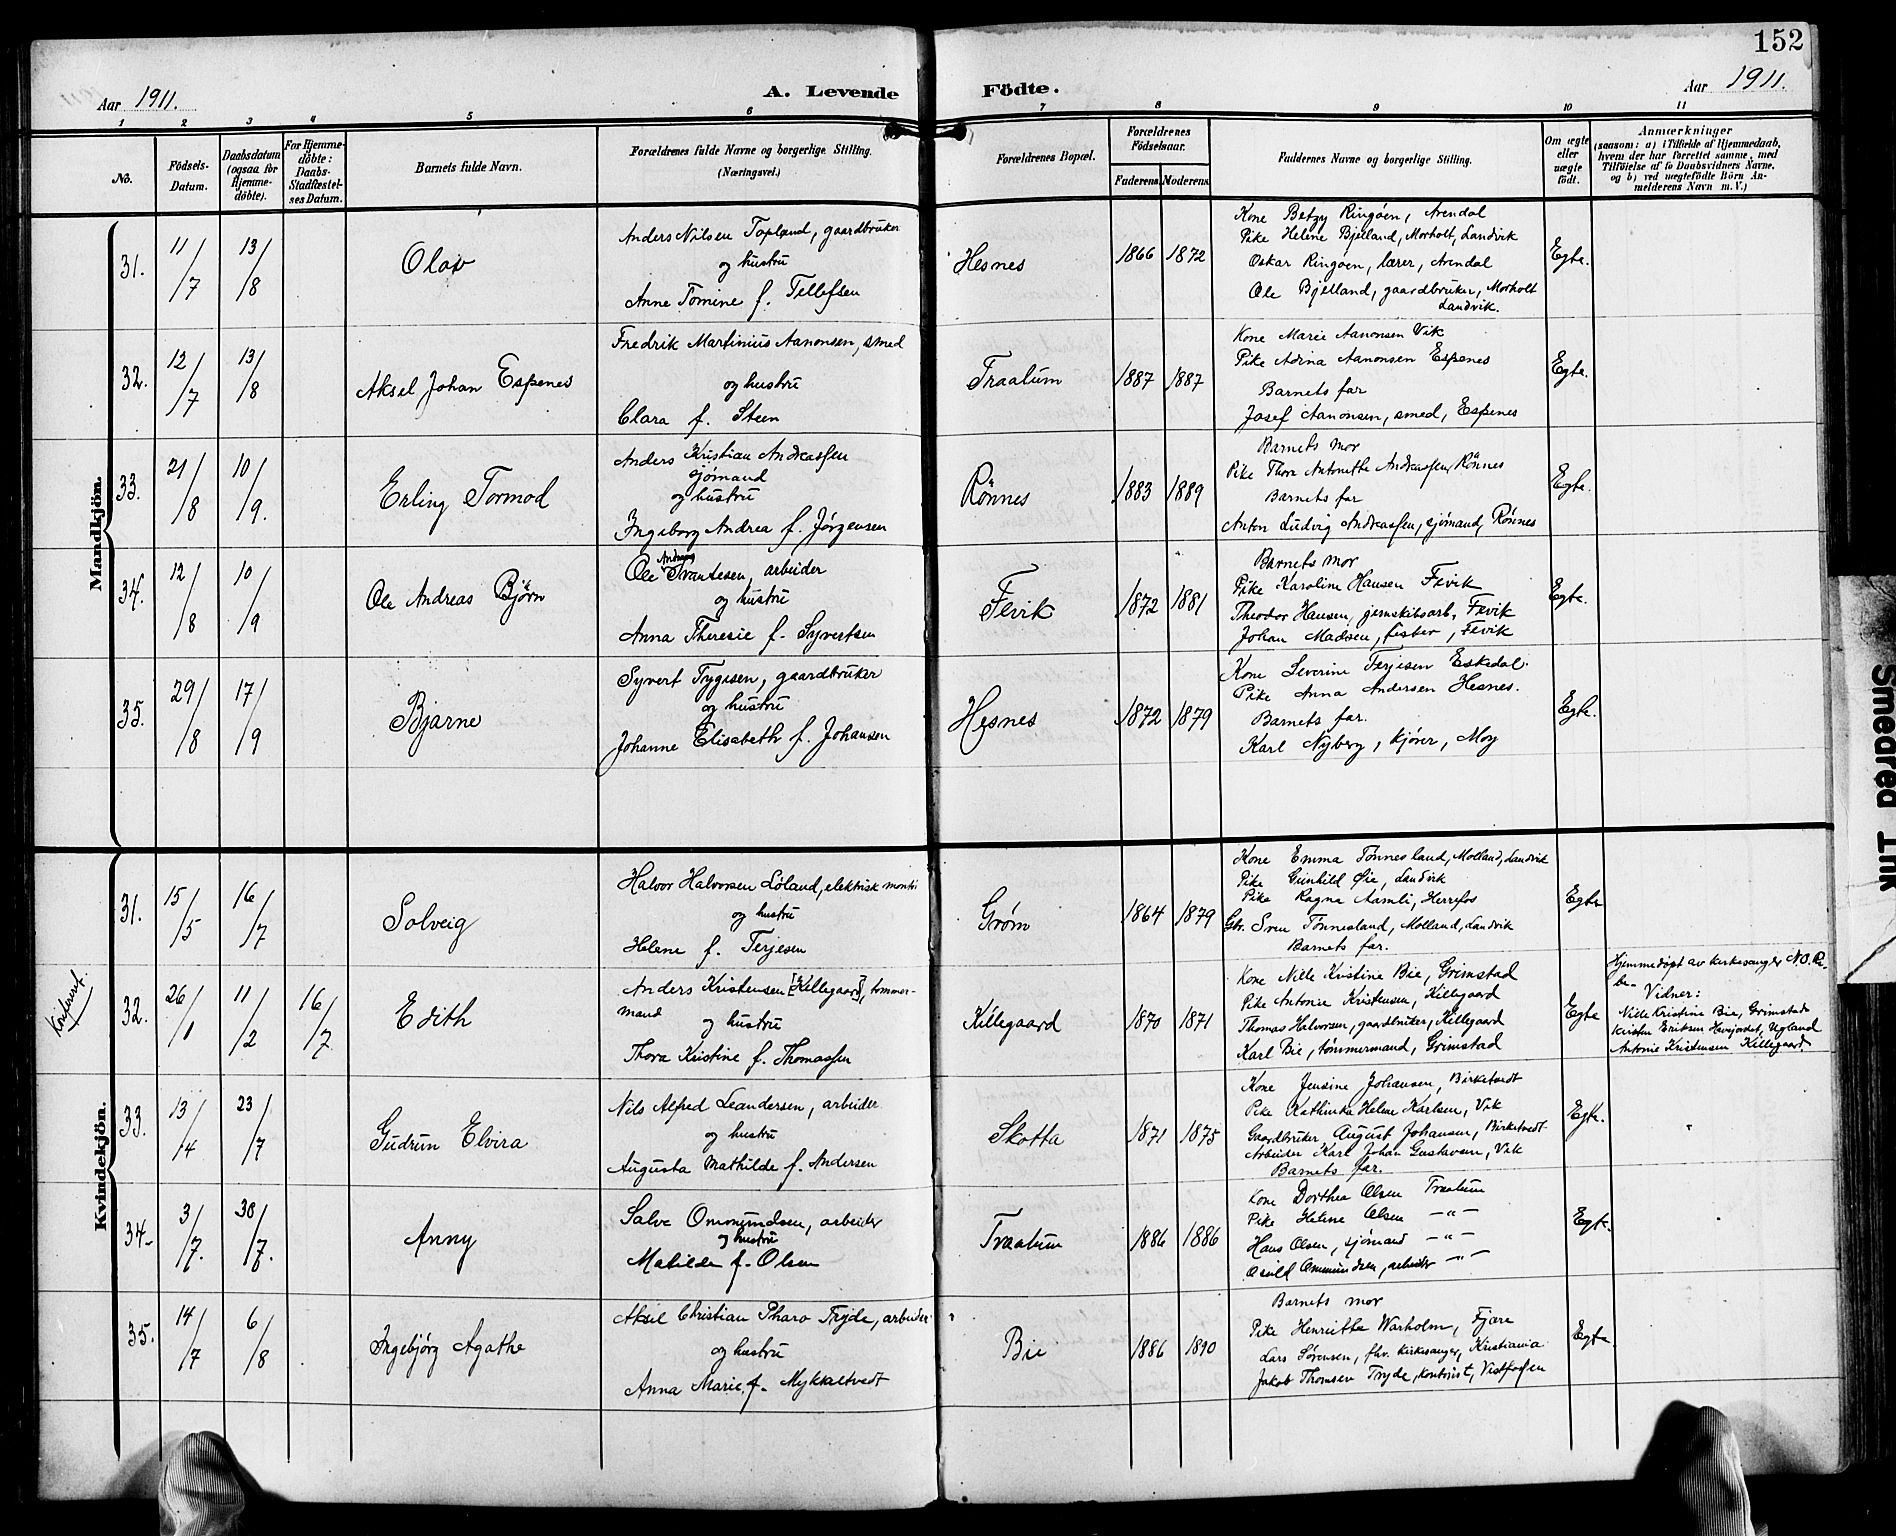 152
Aar 1911.
A. Levende Födte.
Aar 1911.
1 2 3 4 5 6 7 8 9 10 11
No.
Födsels-Datum.
Daabsdatum (ogsaa for Hjemme-døbte).
For Hjemme-döbte: Daabs-Stadfæstel-ses Datum.
Barnets fulde Navn.
Forældrenes fulde Navne og borgerlige Stilling. (Næringsvei.)
Forældrenes Bopæl.
Forældrenes Födselsaar.
Faderens. Moderens.
Faddernes Navne og borgerlige Stilling.
Om ægte eller uægte födt.
Anmærkninger
(saasom: a) i Tilfælde af Hjemmedaab, hvem der har forrettet samme, med Tilföielse af to Daabsvidners Navne. og b) ved uægtefödte Börn An-melderens Navn m. V.)
Mandkjön.
31. 11/7 13/8 Olav
Anders Nilsen Topland, gaardbruker
og hustru
Anne Tomine f. Tellefsen
Hesnes 1866 1872
Kone Betzy Ringøen, Arendal
Pike Helene Bjelland, Morholt, Landvik
Oskar Ringøen, lærer, Arendal
Ole Bjelland, gaardbruker, Morholt
Landvik.
Egte.
32. 12/7 13/8 Aksel Johan Espenes
Fredrik Martinius Aanonsen, smed
og hustru
Clara f. Steen
Traalum 1887 1887
Kone Marie Aanonsen Vik
Pike Adina Aanonsen Espenes
Barnets far
Josef Aanonsen, smed, Espenes
Egte.
33. 21/8 10/9. Erling Tormod
Anders Kristian Andreassen
sjømand
og hustru
Ingeborg Andrea f. Jørgensen
Rønnes 1883 1889
Barnets mor
Pike Thora Antonette Andreassen, Rønnes
Barnets far
Anton Ludvig Andreassen, sjømand, Rønnes
Egte.
34. 12/8 10/9 Ole Andreas Bjørn
Andreas
Ole Svantesen, arbeider
og hustru
Anna Theresie f. Syvertsen
Fevik 1872 1881
Barnets mor
Pike Karoline Hansen Fevik
Theodor Hansen, jernskibsarb. Fevik
Johan Madsen, fisker, Fevik
Egte.
35. 29/8 17/9 Bjarne
Syvert Trygisen, gaardbruker
og hustru
Johanne Elisabeth f. Johansen
Hesnes 1872 1879
Kone Severine Terjesen Eskedal.
Pike Anna Andersen Hesnes.
Barnets far.
Karl Nyberg, kjører, Moy
Egte.
Kvindekjön.
31. 15/5 16/7 Solveig
Halvor Halvorsen Løland, elektrisk montr
og hustru
Helene f. Terjesen
Grøm 1864 1879
Kone Emma Tønnesland, Molland, Landvik
Pike Gunhild Øie, Landvik
Pike Ragna Aamli, Herrefos
Gbr. Sven Tønnesland, Molland, Landvik
Barnets far.
Egte
Konferert.
32. 26/1 11/2 16/7 Edith
Anders Kristensen [Killegaard], tømmer-
mand
og hustru
Thora Kristine f. Thomassen
Killegaard 1870 1871
Kone Nille Kristine Bie, Grimstad
Pike Antonie Kristensen, Killegaard
Thomas Halvorsen, gaardbruker, Killegaard
Karl Bie, tømmermand, Grimstad
Egte
Hjemmedøpt av kirkesanger N.O. Ri-
be. Vidner:
Nille Kristine Bie, Grimstad
Kristen Eriksen Hevejordet, Ugland
Antonie Kristensen Killegaard
33. 13/4 23/7 Gudrun Elvira
Nils Alfred Leandersen, arbeider
og hustru
Augusta Mathilde f. Andersen
Skotta 1871 1875
Kone Jensine Johansen, Birketvedt
Pike Kathinka Helene Karlsen, Vik
Gaardbruker August Johansen, Birketvedt
Arbeider Karl Johan Gustavsen, Vik
Barnets far.
Egte.
34. 3/7. 30/7. Anny
Salve Ommundsen, arbeider
og hustru
Matilde f. Olsen
Traalum 1886 1886
Kone Dorthea Olsen Traalum
Pike Helene Olsen — " —
Hans Olsen, sjømand — " —
Osuld Ommundsen, arbeider — " —
Egte.
35. 14/7 6/8 Ingebjørg Agathe
Aksel Christian Pharo Tryde, arbeider
og hustru
Anna Marie f. Mykkeltvedt
Bie 1886 1890
Barnets mor
Pike Henriette Warholm, Fjære
Lars Sørensen, fhv. kirkesanger, Kristiania
Jakob Thomsen Tryde, kontorist, Vestfossen
Egte
Smeared Ink